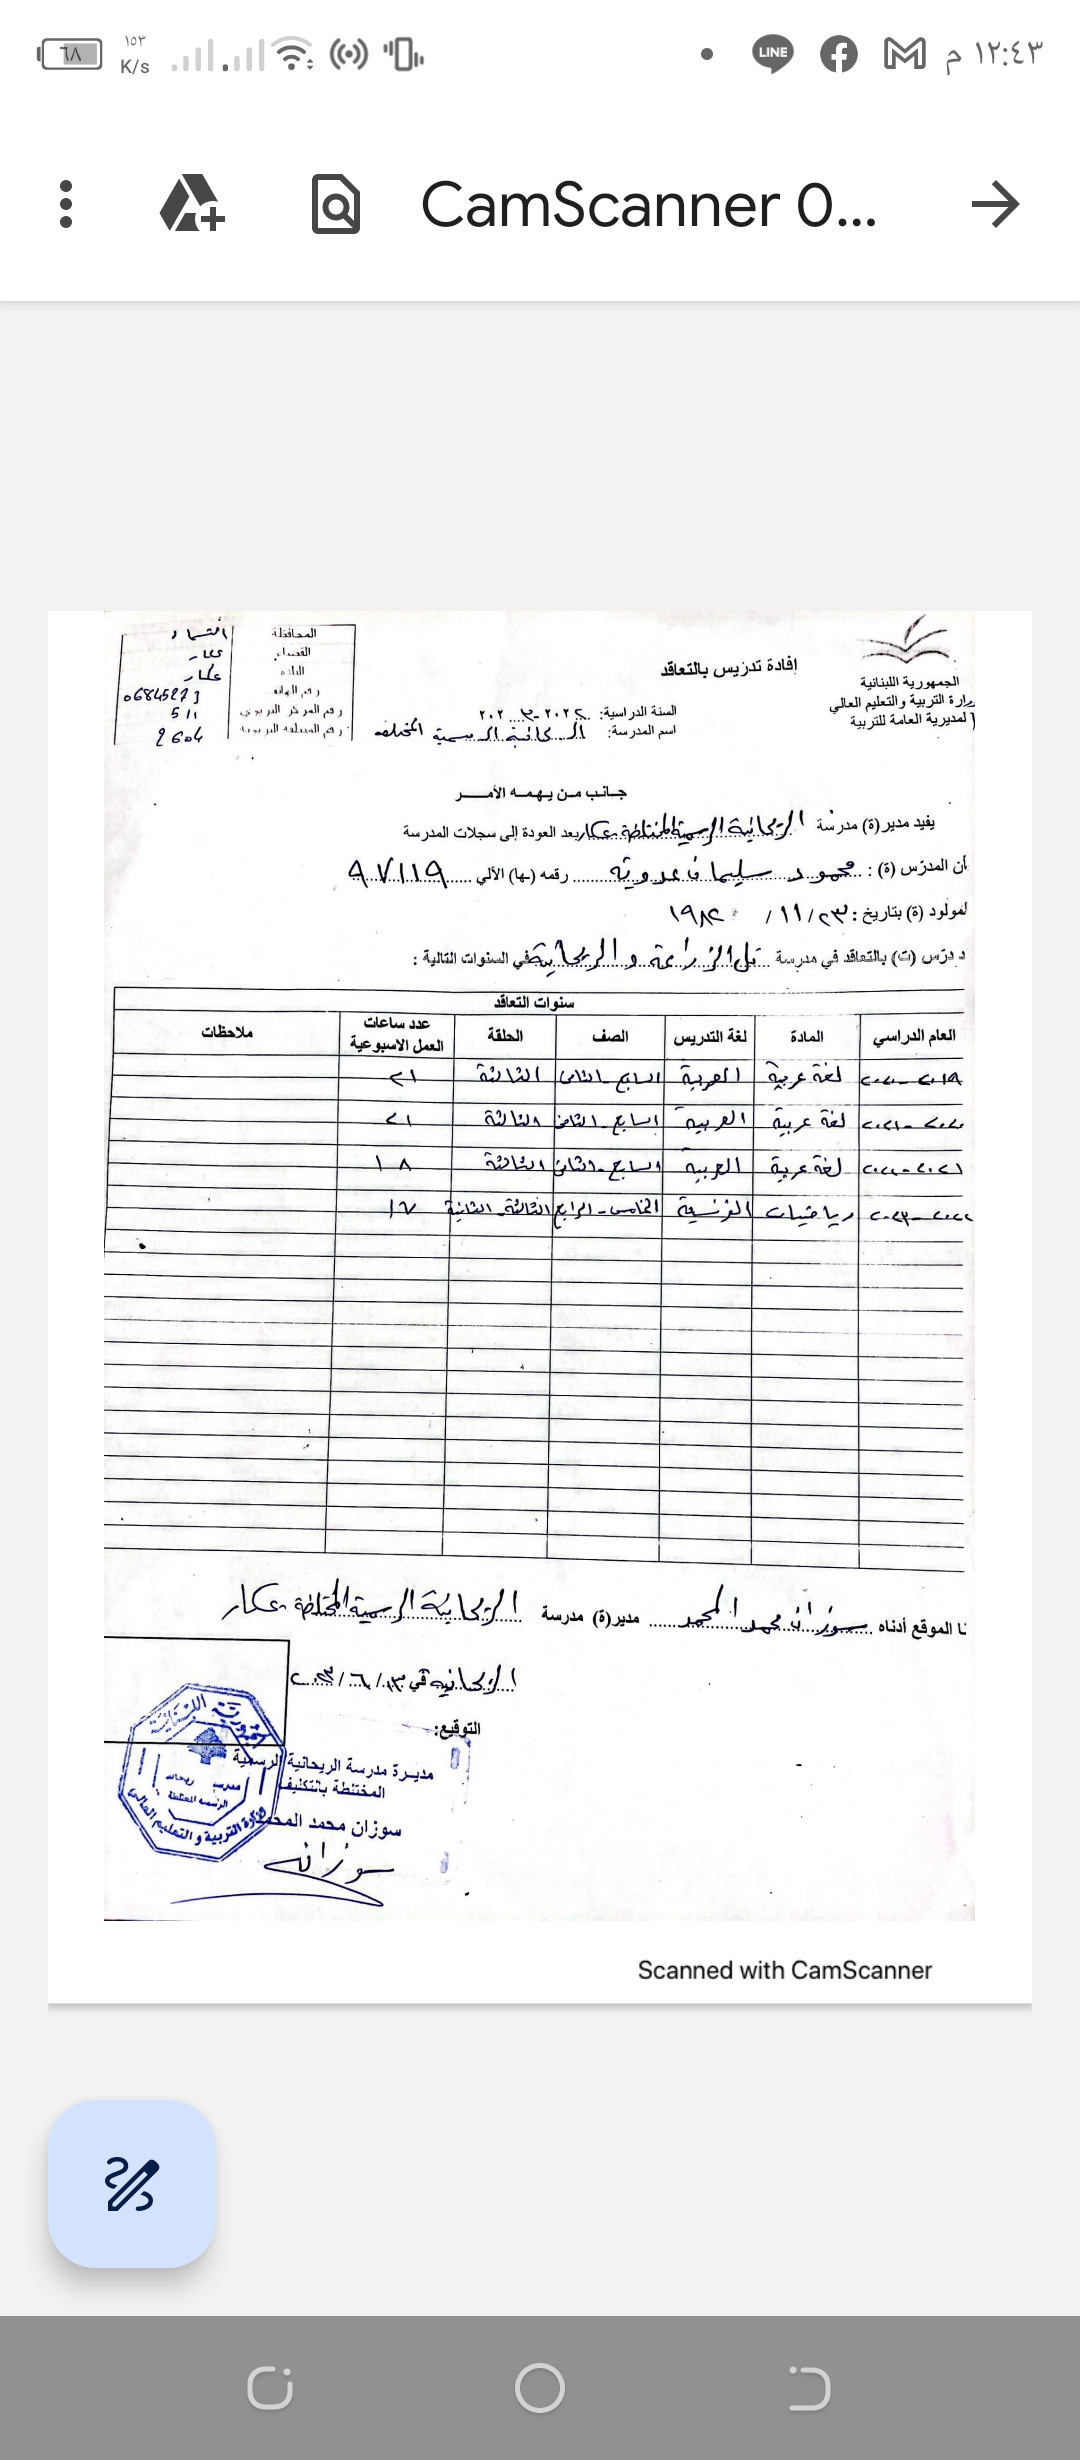 ١٢:٤٣ م
LINE
١٥٣
K/s
٦٨
CamScanner 0...
الجمهورية اللبنانية
وزارة التربية والتعليم العالي
المديرية العامة للتربية
إفادة تدريس بالتعاقد
السنة الدراسية: ٢٠٢٢-٢٠٢٣
اسم المدرسة: الريحانية الرسمية المختلطة
المحافظة الشمال
القضاء عكار
عكار
06845273
511
2604
جانب من يهمه الأمر
يفيد مدير(ة) مدرسة الريحانية الرسمية المختلطة - عكار بعد العودة إلى سجلات المدرسة
أن المدرّس (ة) : محمود سليمان عدوية رقمه (ـها) الآلي ٩٧١١٩
المولود (ة) بتاريخ: ٢٣/ ١١/ ١٩٨٢
د درّس (ت) بالتعاقد في مدرسة تل الزراعة و الريحانية في السنوات التالية :
سنوات التعاقد
العام الدراسي المادة لغة التدريس الصف الحلقة عدد ساعات العمل الاسبوعية ملاحظات
٢٠١٩-٢٠٢٠ لغة عربية العربية السابع - الثامن الثالثة ٢١
٢٠٢٠-٢٠٢١ لغة عربية العربية السابع - الثامن الثالثة ٢١
٢٠٢١-٢٠٢٢ لغة عربية العربية السابع - الثامن الثالثة ١٨
٢٠٢٢-٢٠٢٣ رياضيات الفرنسية الخامس - الرابع الثالثة - الثانية ١٧
نا الموقع أدناه سوزان محمد المحمد مدير(ة) مدرسة الريحانية الرسمية المختلطة - عكار
الريحانية في ١٣/ ٦/ ٢٠٢٣
التوقيع:
مديرة مدرسة الريحانية الرسمية
المختلطة بالتكليف
سوزان محمد المحمد
سوزان
الجمهورية اللبنانية
وزارة التربية والتعليم العالي
Scanned with CamScanner